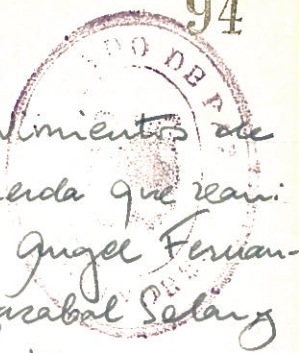 94
DO DE P
vimientos de
erda que reani-
Angel Fernan-
zabal Selar y